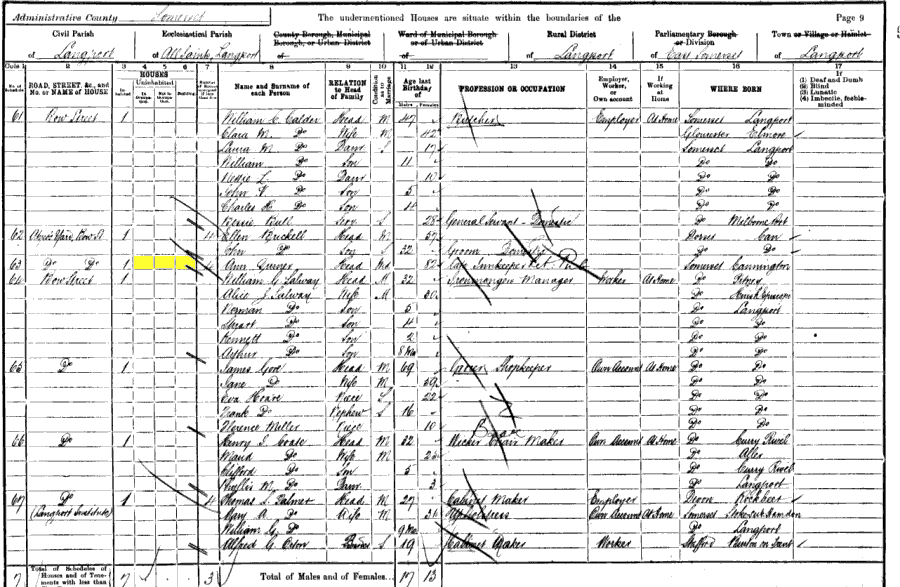 Administrative County Somerset The undermentioned Houses are situate within the boundaries of the Page 9
Civil Parish Ecclesiastical Parish County Borough, Municipal Borough, or Urban District Ward of Municipal Borough or of Urban District Rural District Parliamentary Borough or Division Town or Village or Hamlet
of Langport of All Saints, Langport of of of Langport of East Somerset of Langport
1 2 3 4 5 6 7 8 9 10 11 12 13 14 15 16 17
ROAD, STREET, &c., and No. or NAME of HOUSE HOUSES Uninhabited Name and Surname of each Person RELATION to Head of Family Condition as to Marriage Age last Birthday of Males Females PROFESSION OR OCCUPATION Employer, Worker, or Own account If Working at Home WHERE BORN If (1) Deaf and Dumb (2) Blind (3) Lunatic (4) Imbecile, feeble-minded
61 Bow Street 1 William C. Calder Head M 47 Butcher Employer At Home Somerset Langport
Clara M. Do Wife M 42 Gloucester Elmore
Laura M. Do Daur S 17 Somerset Langport
William Do Son 11 Do Do
Nessie L. Do Daur 10 Do Do
John Do Son 5 Do Do
Charles R. Do Son 4 Do Do
Bessie Serv S 28 General Servant - Domestic Do
62 Bow St 1 4 Ellen Head 57 Dorset
John Do Son S 22 Groom Domestic
63 Do Do 1 Ann Head Wd 82 Somerset Cannington
64 Bow Street 1 William G. Salway Head M 32 Ironmongers Manager Worker At Home Do Pitney
Alice J. Salway Wife M 30 Do Huish Episcopi
Norman Do Son 5 Do Langport
Stuart Do Son 4 Do Do
Kennett Do Son 2 Do Do
Arthur Do Son 8 Mo Do Do
65 Do 1 James Gore Head M 69 Shopkeeper Own Account At Home Do Do
Jane Do Wife M Do Do
Eva Hoare Niece S 22 Do Do
Frank Do Nephew S 16 Do Do
Florence Miller Niece 10 Do Do
66 Do 1 Henry J. Coate Head M 32 Wicker Chair Maker Own Account At Home Do Curry Rivel
Maud Do Wife M 26 Do Aller
Clifford Do Son 5 Do Curry Rivel
Phyllis M. Do Daur 3 Do Langport
67 Do 1 4 Thomas Head M 27 Cabinet Maker Employer Devon Rockbeare
(Langport Institute) Mary A. Do Wife M Upholsteress Own Account At Home Somerset Stoke sub Hamdon
William Do Son 9 Mo Do Langport
Alfred G. S 19 Cabinet Maker Worker Stafford Burton on Trent
7 Total of Schedules of Houses and of Tenements with less than 7 3 Total of Males and of Females... 17 13